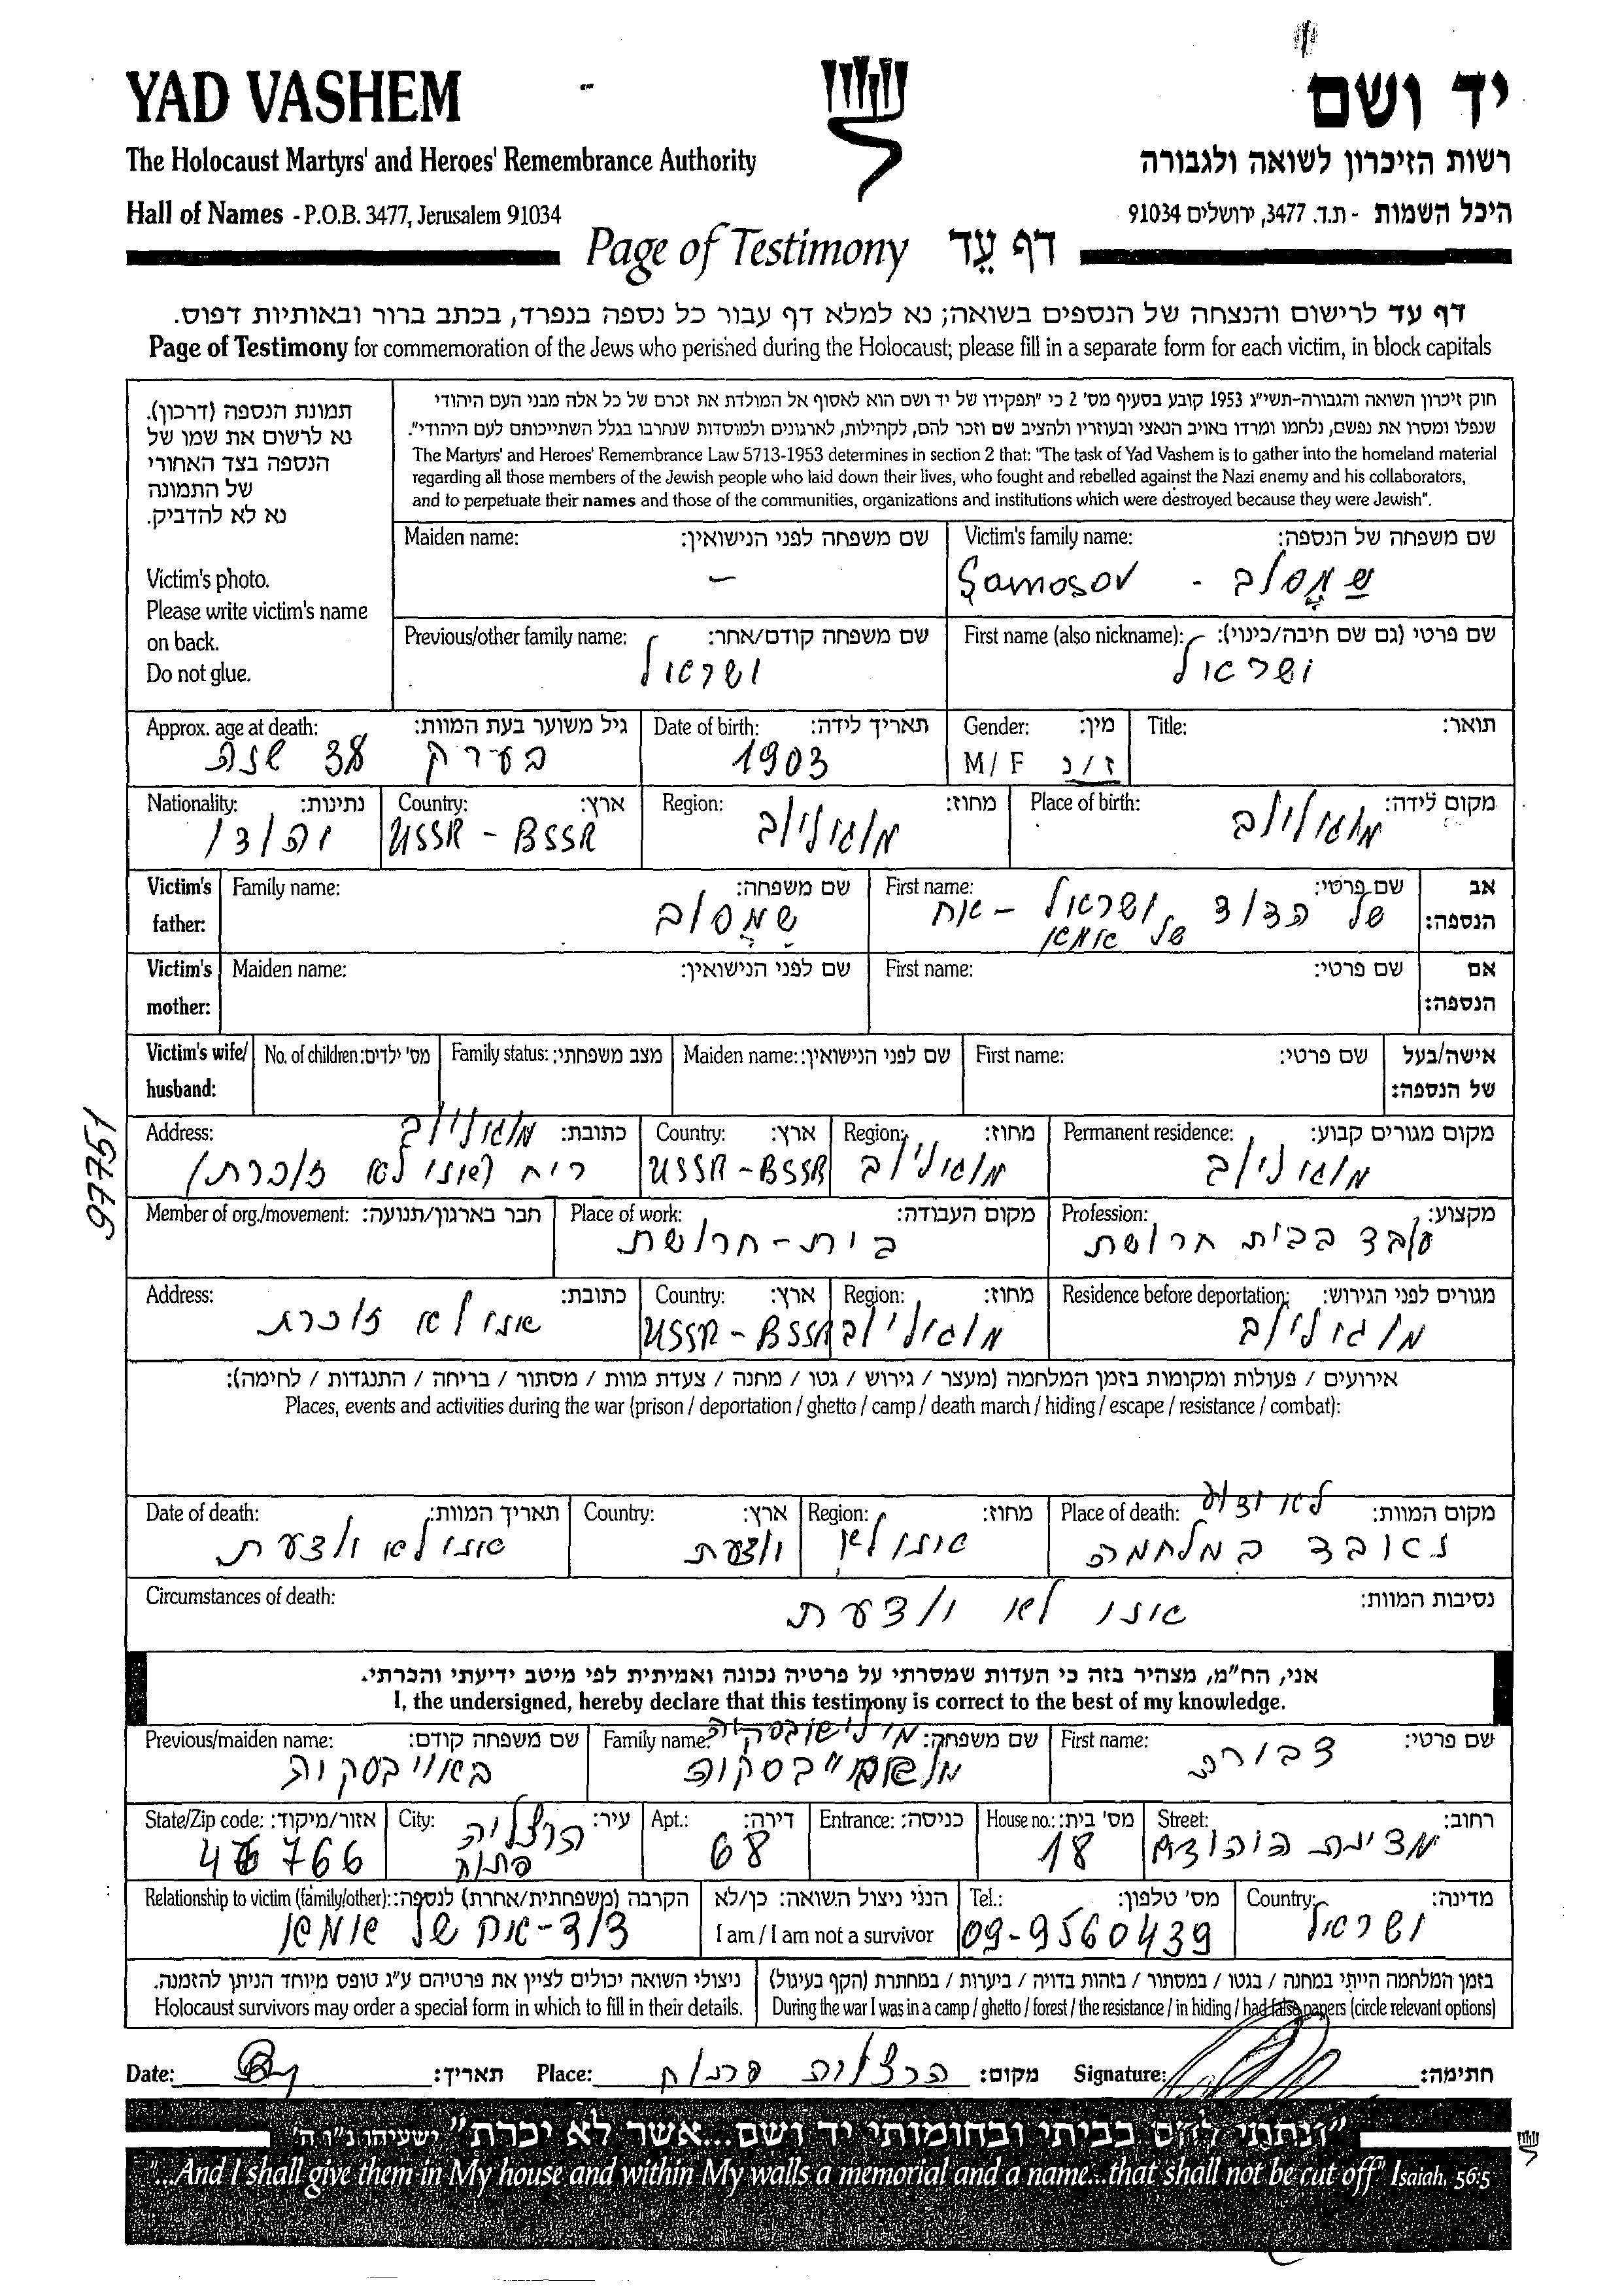 YAD VASHEM
יד ושם
The Holocaust Martyrs' and Heroes' Remembrance Authority
רשות הזיכרון לשואה ולגבורה
Hall of Names - P.O.B. 3477, Jerusalem 91034
היכל השמות - ת.ד. 3477, ירושלים 91034
Page of Testimony דף עֵד
דף עד לרישום והנצחה של הנספים בשואה; נא למלא דף עבור כל נספה בנפרד, בכתב ברור ובאותיות דפוס.
Page of Testimony for commemoration of the Jews who perished during the Holocaust; please fill in a separate form for each victim, in block capitals
תמונת הנספה (דרכון).
נא לרשום את שמו של
הנספה בצד האחורי
של התמונה
נא לא להדביק.
Victim's photo.
Please write victim's name
on back.
Do not glue.
חוק זיכרון השואה והגבורה-תשי"ג 1953 קובע בסעיף מס' 2 כי "תפקידו של יד ושם הוא לאסוף אל המולדת את זכרם של כל אלה מבני העם היהודי
שנפלו ומסרו את נפשם, נלחמו ומרדו באויב הנאצי ובעוזריו ולהציב שם וזכר להם, לקהילות, לארגונים ולמוסדות שנחרבו בגלל השתייכותם לעם היהודי".
The Martyrs' and Heroes' Remembrance Law 5713-1953 determines in section 2 that: "The task of Yad Vashem is to gather into the homeland material
regarding all those members of the Jewish people who laid down their lives, who fought and rebelled against the Nazi enemy and his collaborators,
and to perpetuate their names and those of the communities, organizations and institutions which were destroyed because they were Jewish".
Victim's family name: שם משפחה של הנספה:
Samosov - שמסוב
Maiden name: שם משפחה לפני הנישואין:
–
First name (also nickname): שם פרטי (גם שם חיבה/כינוי):
ישראל
Previous/other family name: שם משפחה קודם/אחר:
ישראל
Title: תואר:
Gender: מין:
M / F ז / נ
Date of birth: תאריך לידה:
1903
Approx. age at death: גיל משוער בעת המוות:
בערך 38 שנה
Place of birth: מקום לידה:
מוגילוב
Region: מחוז:
מוגילוב
Country: ארץ:
USSR - BSSR
Nationality: נתינות:
יהודי
Victim's father: אב הנספה:
First name: שם פרטי:
של הדוד ישראל - אח
של אמא
Family name: שם משפחה:
שמסוב
Victim's mother: אם הנספה:
First name: שם פרטי:
Maiden name: שם לפני הנישואין:
Victim's wife/husband: אישה/בעל של הנספה:
First name: שם פרטי:
Maiden name: שם לפני הנישואין:
Family status: מצב משפחתי:
No. of children: מס' ילדים:
Permanent residence: מקום מגורים קבוע:
מוגילוב
Region: מחוז:
מוגילוב
Country: ארץ:
USSR - BSSR
Address: כתובת:
מוגילוב
(אני לא זוכרת)
97751
Profession: מקצוע:
עובד בבית חרושת
Place of work: מקום העבודה:
בית-חרושת
Member of org./movement: חבר בארגון/תנועה:
Residence before deportation: מגורים לפני הגירוש:
מוגילוב
Region: מחוז:
מוגילוב
Country: ארץ:
USSR - BSSR
Address: כתובת:
אני לא זוכרת
אירועים / פעולות ומקומות בזמן המלחמה (מעצר / גירוש / גטו / מחנה / צעדת מוות / מסתור / בריחה / התנגדות / לחימה):
Places, events and activities during the war (prison / deportation / ghetto / camp / death march / hiding / escape / resistance / combat):
Place of death: מקום המוות:
לא ידוע
נאבד במלחמה
Region: מחוז:
אני לא
Country: ארץ:
יודעת
Date of death: תאריך המוות:
אני לא יודעת
Circumstances of death: נסיבות המוות:
אני לא יודעת
אני, הח"מ, מצהיר בזה כי העדות שמסרתי על פרטיה נכונה ואמיתית לפי מיטב ידיעתי והכרתי.
I, the undersigned, hereby declare that this testimony is correct to the best of my knowledge.
First name: שם פרטי:
דבורה
Family name: שם משפחה:
Previous/maiden name: שם משפחה קודם:
Street: רחוב:
מדינת היהודים
House no.: מס' בית:
18
Entrance: כניסה:
Apt.: דירה:
68
City: עיר:
הרצליה
פתוח
State/Zip code: אזור/מיקוד:
46766
Country: מדינה:
ישראל
Tel.: מס' טלפון:
09-9560439
הנני ניצול השואה: כן/לא
I am / I am not a survivor
Relationship to victim (family/other): הקרבה (משפחתית/אחרת) לנספה:
דוד-אח של אמא
בזמן המלחמה הייתי במחנה / בגטו / במסתור / בזהות בדויה / ביערות / במחתרת (הקף בעיגול)
During the war I was in a camp / ghetto / forest / the resistance / in hiding / had false papers (circle relevant options)
ניצולי השואה יכולים לציין את פרטיהם ע"ג טופס מיוחד הניתן להזמנה.
Holocaust survivors may order a special form in which to fill in their details.
Date: תאריך:
Place: הרצליה פתוח מקום:
Signature: חתימה:
"ונתתי להם בביתי ובחומותי יד ושם...אשר לא יכרת" ישעיהו נ"ו ה'
"...And I shall give them in My house and within My walls a memorial and a name...that shall not be cut off" Isaiah, 56:5